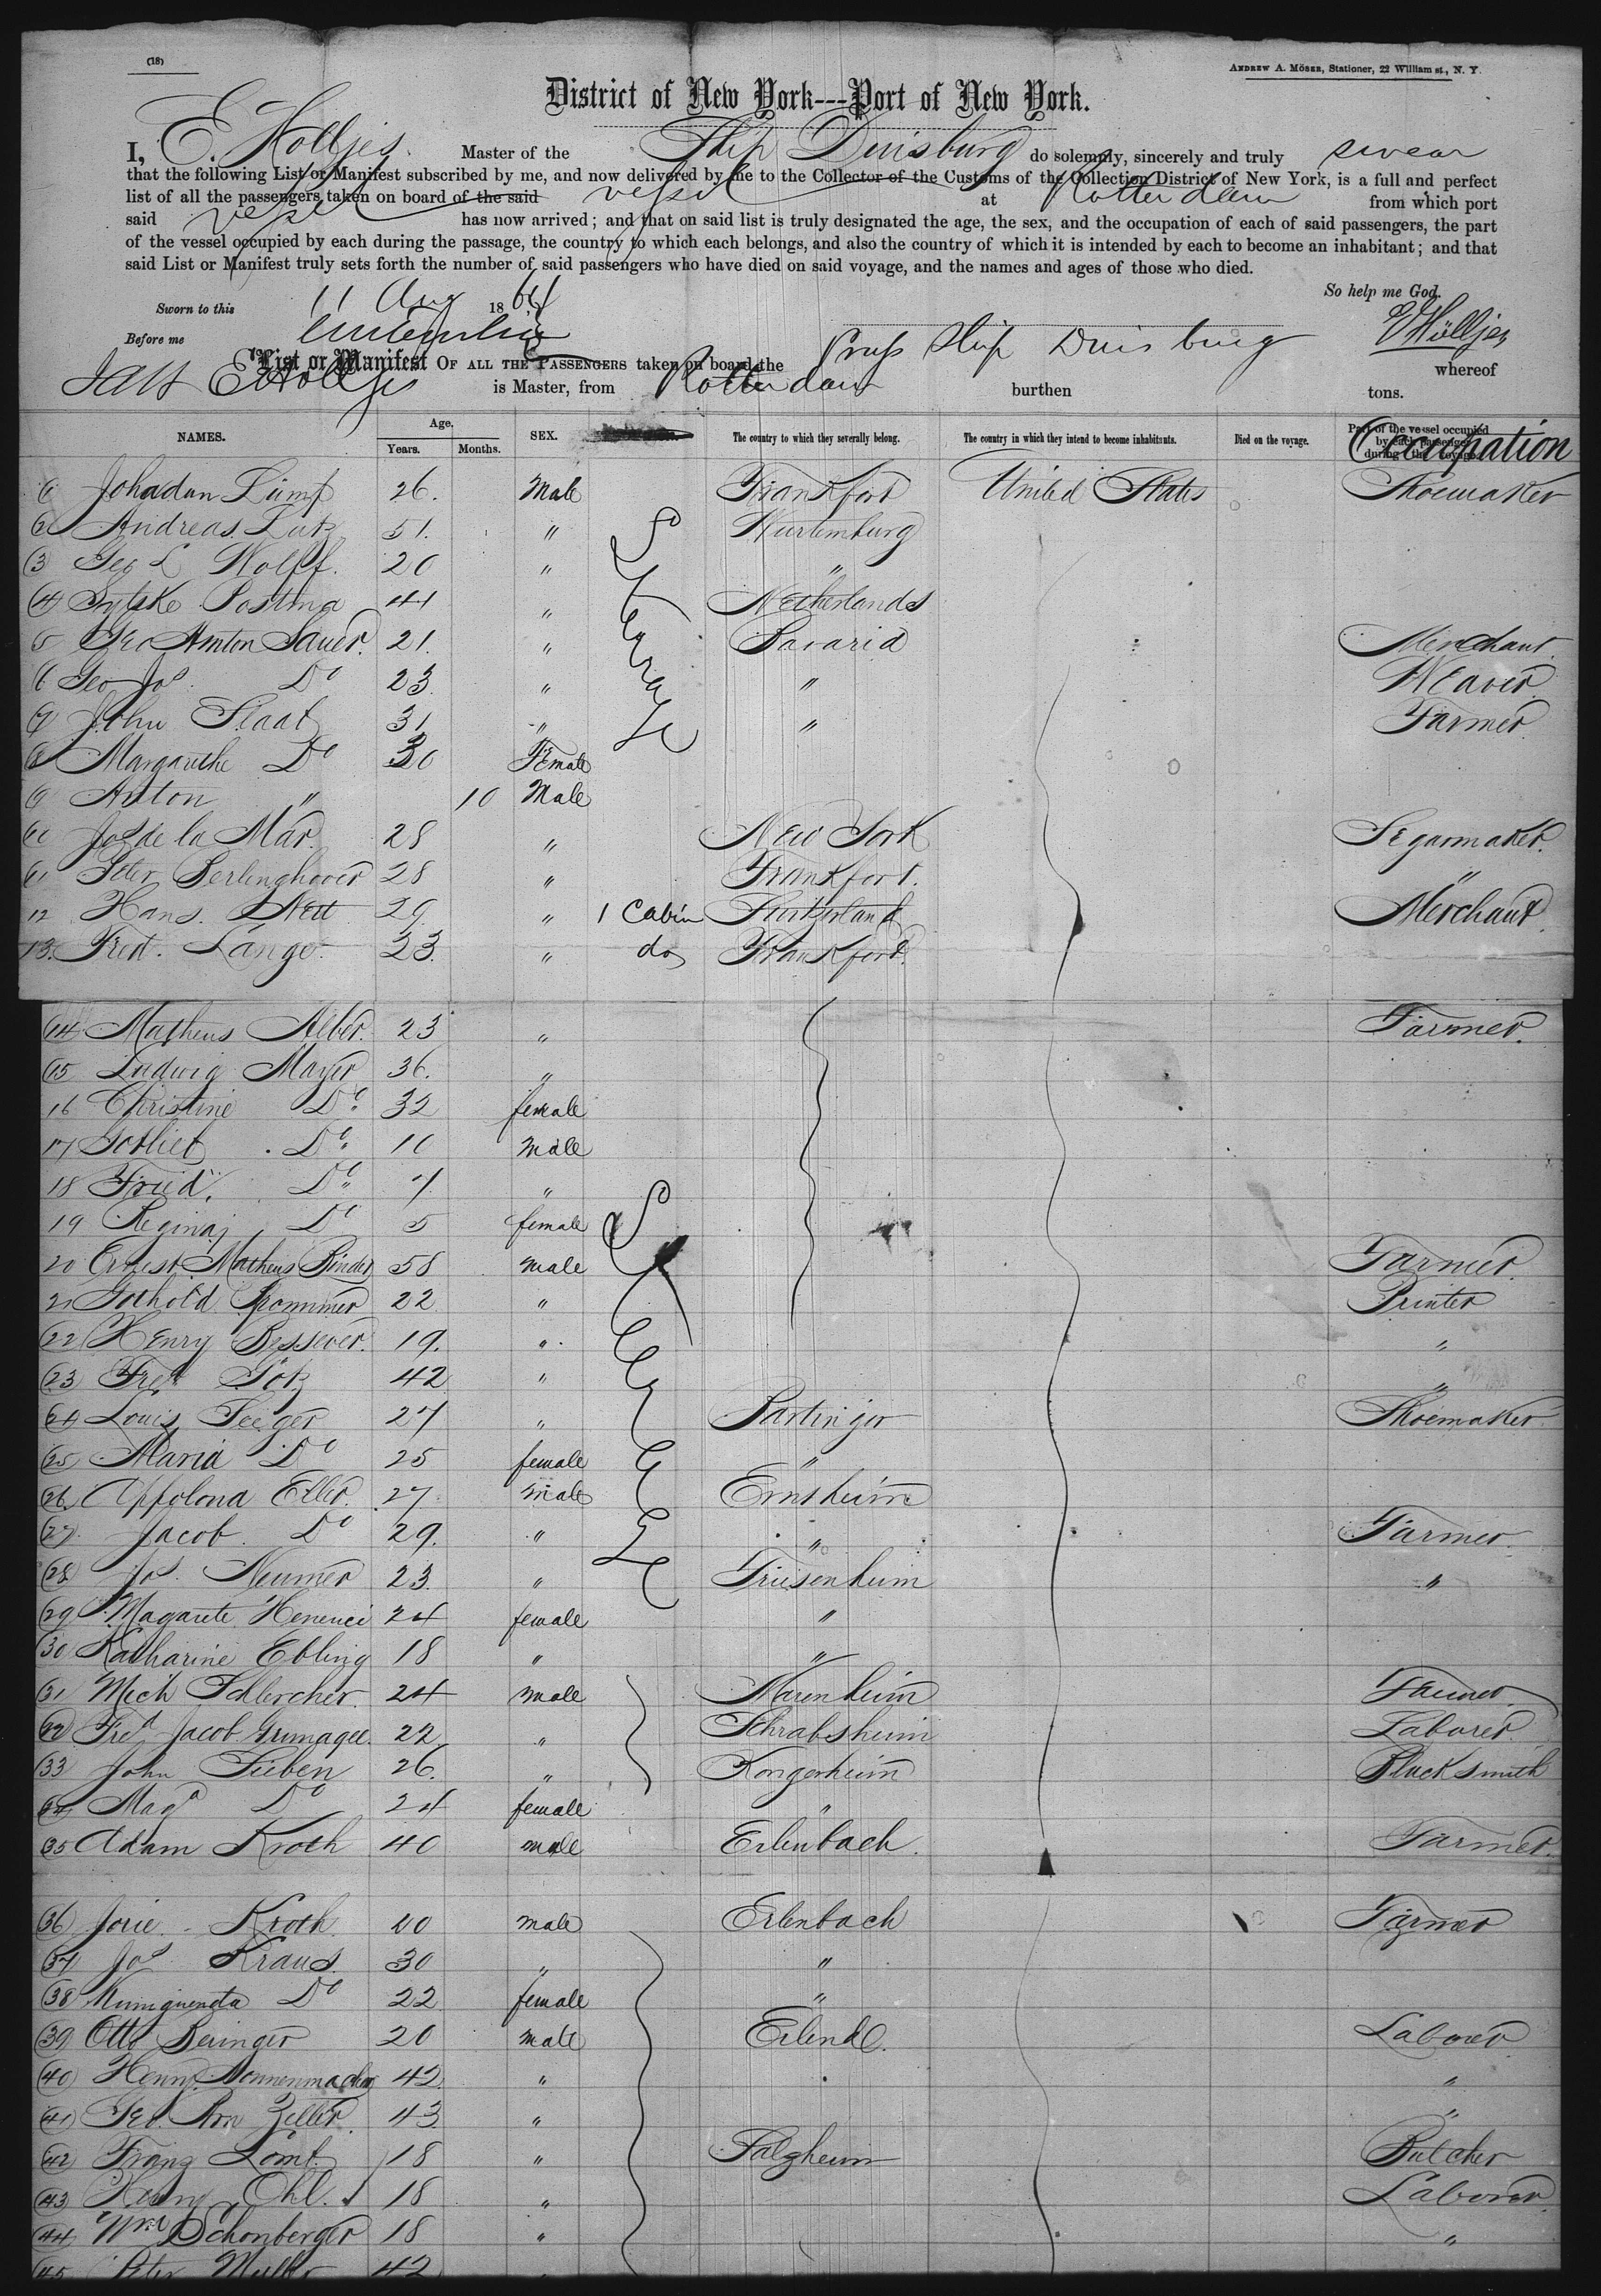 (18)
ANDREW A. MÖSER, Stationer, 22 William st., N. Y.
District of New York---Port of New York.
I, E. Holljes Master of the Ship Duisburg do solemnly, sincerely and truly swear
that the following List or Manifest subscribed by me, and now delivered by me to the Collector of the Customs of the Collection District of New York, is a full and perfect
list of all the passengers taken on board of the said vessel at Rotterdam from which port
said vessel has now arrived; and that on said list is truly designated the age, the sex, and the occupation of each of said passengers, the part
of the vessel occupied by each during the passage, the country to which each belongs, and also the country of which it is intended by each to become an inhabitant; and that
said List or Manifest truly sets forth the number of said passengers who have died on said voyage, and the names and ages of those who died.
So help me God.
Sworn to this 11 Aug 1864
Before me
List or Manifest OF ALL THE PASSENGERS taken on board the Pruss Ship Duisburg whereof
E Holljes is Master, from Rotterdam burthen tons.
NAMES. Age. Years. Months. SEX. The country to which they severally belong. The country in which they intend to become inhabitants. Died on the voyage. Part of the vessel occupied by each passenger during the voyage. Occupation
Steerage
1 Johadan Lump 26. Male Frankfort United States Shoemaker
2 Andreas Lutz 51. " Wurtemburg
3 Geo L Wolff. 20 " "
4 Sytske Postma 44 " Netherlands
5 Geo Anton Sauer. 21. " Bavaria Merchant
6 Geo Jos Do 23 " " Weaver
7 John Staat 31 " " Farmer
8 Margarethe Do 30 Female
9 Anton " 10 Male
10 Jos de la Mar. 28 " New York Segarmaker.
11 Peter Berlinghover 28 " Frankfort. "
12 Hans Nett 29 " 1 Cabin Switzerland Merchant
13. Fred. Lange 23. " do Frankfort.
14 Matheus Alber. 23 " Farmer.
15 Ludwig Mayer 36. "
16 Christine Do 32 female
17 Gotlieb Do 10 male
18 Fried. Do 7 "
19 Regina Do 5 female
Steerage
20 Ernest Matheus Binder 58 male Farmer.
21 Gothold Prommer 22 " Printer
22 Henry 19. " "
23 Fred Götz 42 " "
24 Louis Seeger 27 " Shoemaker
25 Maria Do 25 female "
26. Appolona Eller. 27 male Ernsheim
27. Jacob Do 29. " " Farmer
28 Jos. Neumer 23. " Friesenheim "
29 Magarete 24 female "
30 Katharine Ebling 18 " "
31 Mich Schlercher. 24 male Farmer
32 Fred Jacob 22 " Laborer
33 John Sieben 26. " Kongerheim Blacksmith
34 Magd Do 24 female "
35 Adam Kroth 40 male Erlenbach. Farmer.
36 Kroth 20 male Erlenbach Farmer
37 Jos Kraus 30 " "
38 Do 22 female "
39 Otto Beringer 20 male Laborer
40 Henry Nonnenmacher 42. " "
41 Geo. Zeller 43 " "
42 Franz Lomt 18 " Butcher
43 Henry Ohl. 18 " Laborer
44 Wm Schonberger 18 " "
45 Peter Muller 42